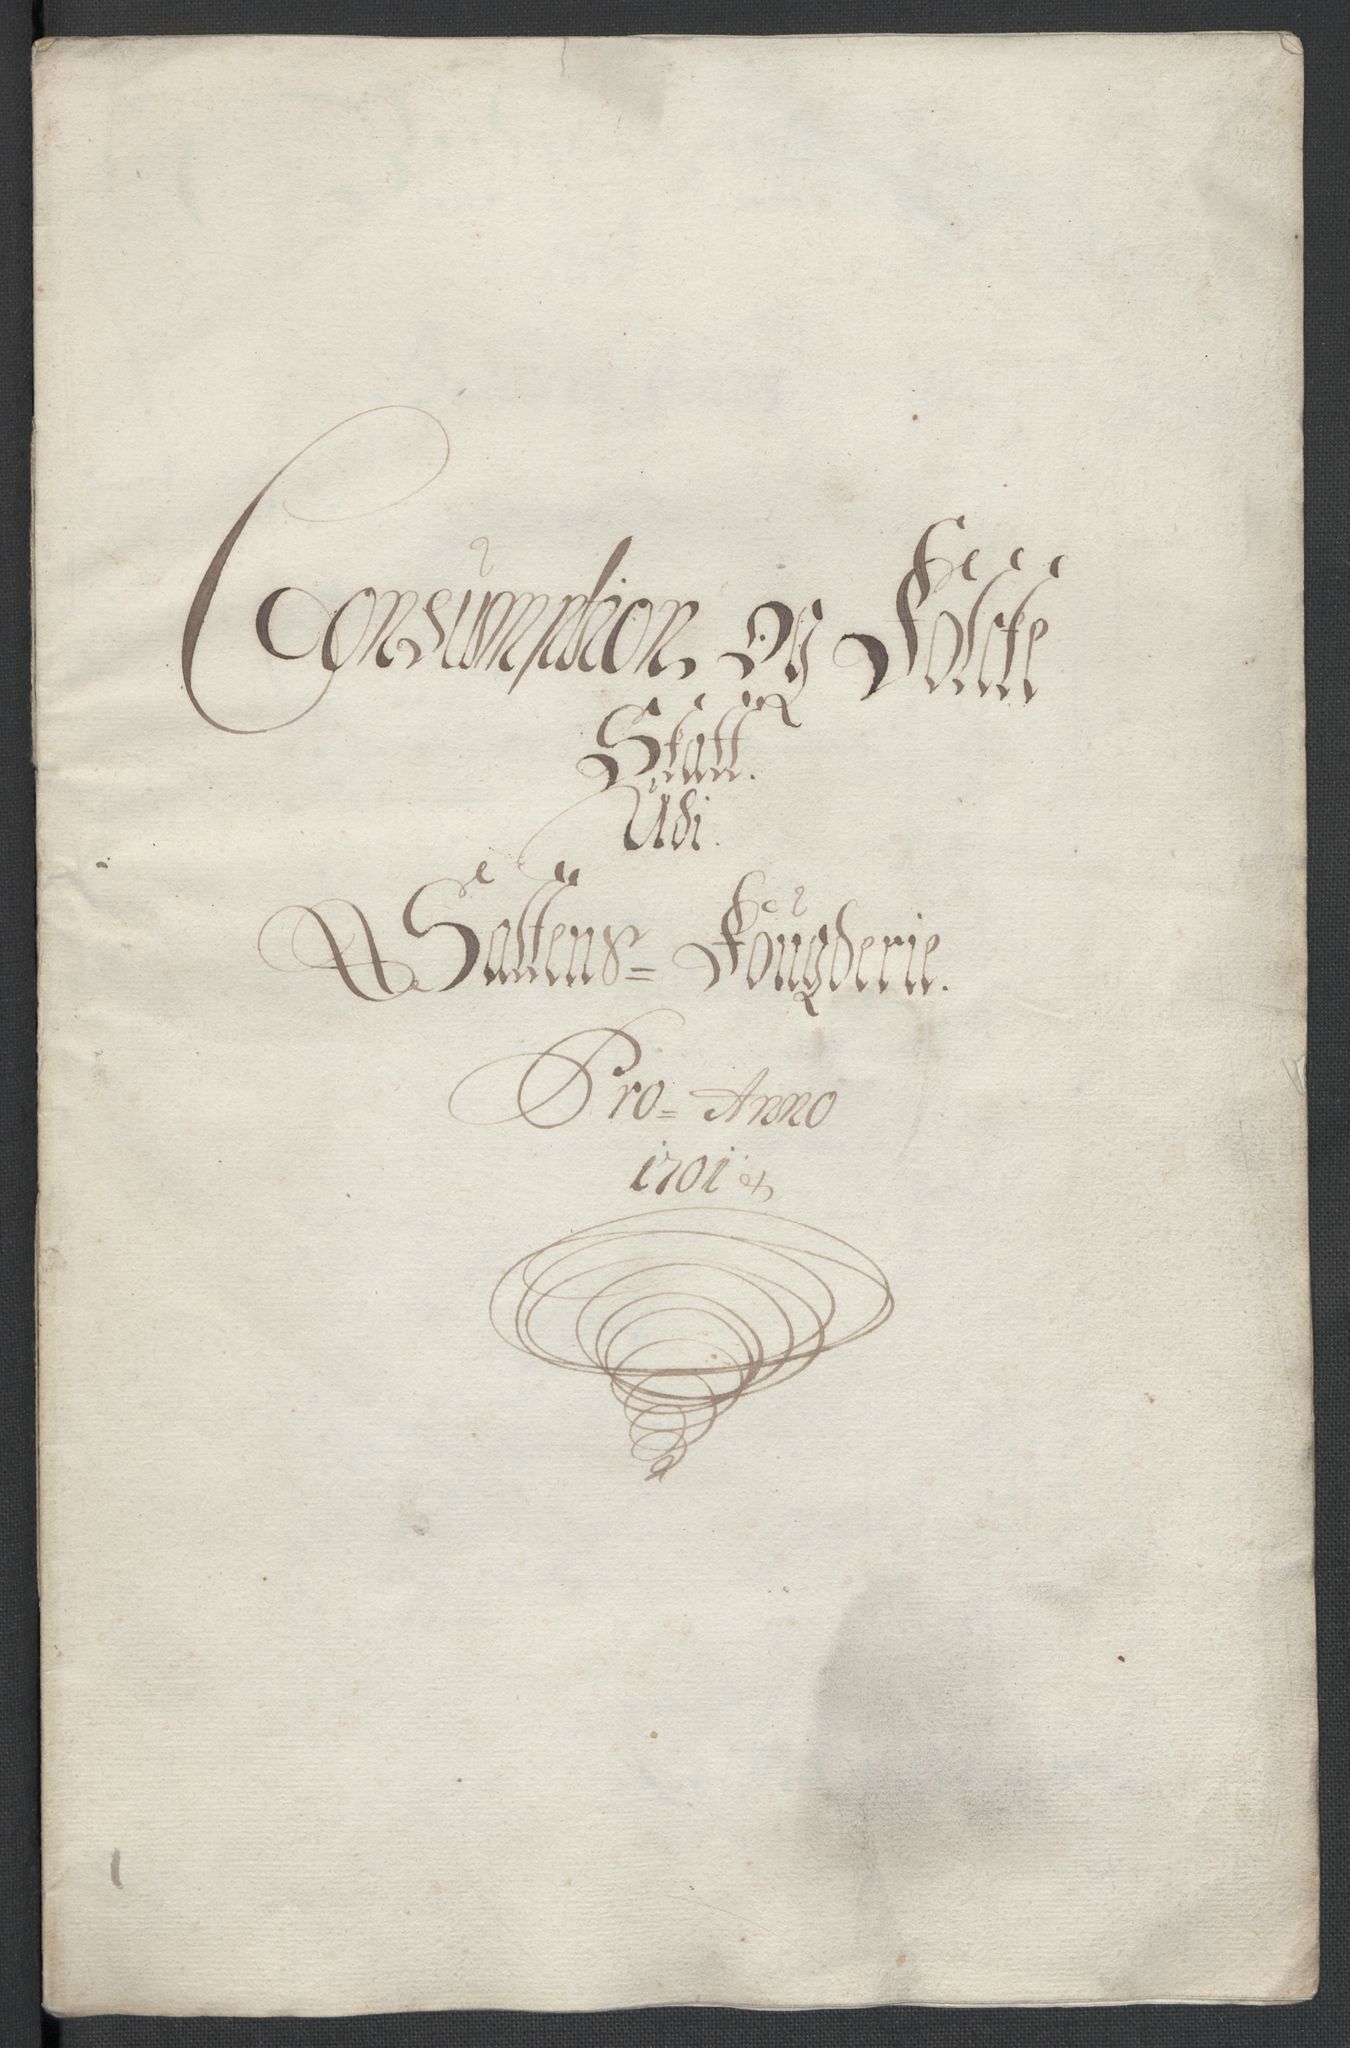 Consumption og Folcke
Skatt.
Udi.
Saltens= Fougderie.
Pro= Anno
1701